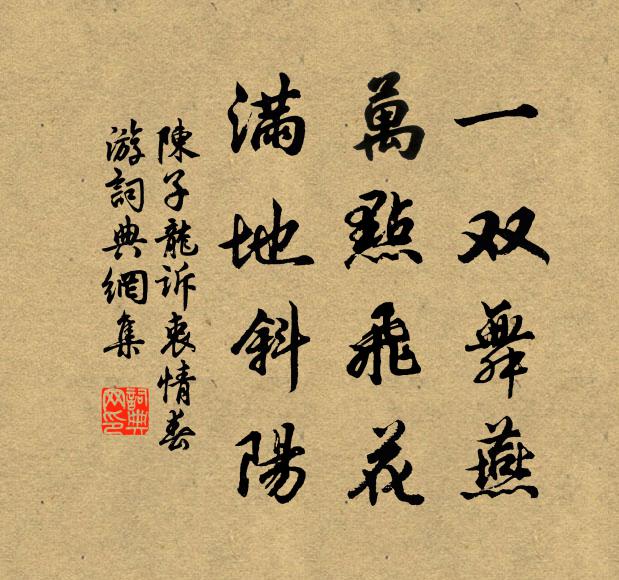 一双舞燕
萬點飛花
滿地斜陽
陳子龍訴衷情春
游詞典網集
詞典網印